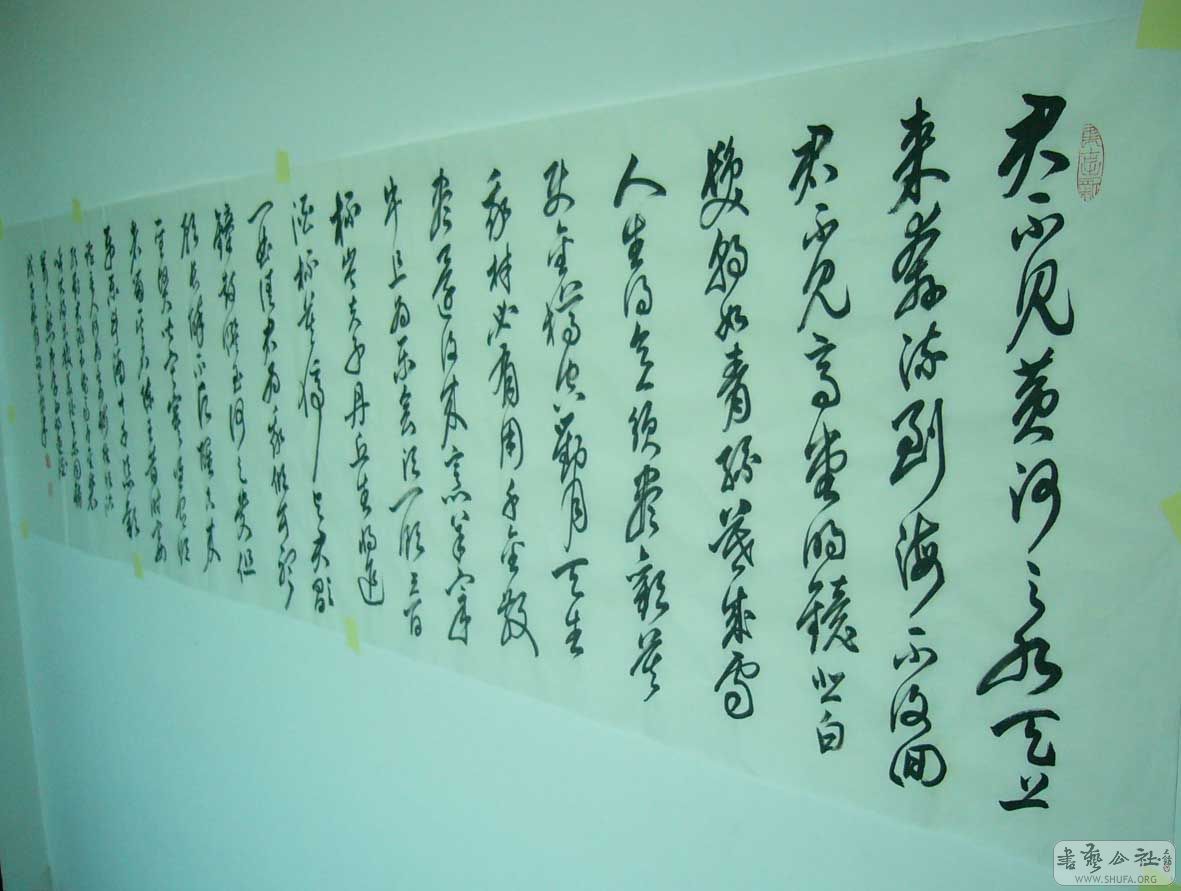 君不见黄河之水天上
来奔流到海不復回
君不见高堂明镜悲白
髮朝如青丝暮成雪
人生得意须尽欢莫
使金樽空對月天生
我材必有用千金散
尽还復来烹羊宰
牛且为乐会须一饮三百
杯岑夫子丹丘生将进
酒杯莫停与君歌
一曲请君为我倾耳听
钟鼓馔玉何足贵但
愿长醉不復醒古来
圣贤皆寂寞惟有饮
者留其名陈王昔时宴
平乐斗酒十千恣欢
書藝公社
WWW.SHUFA.ORG